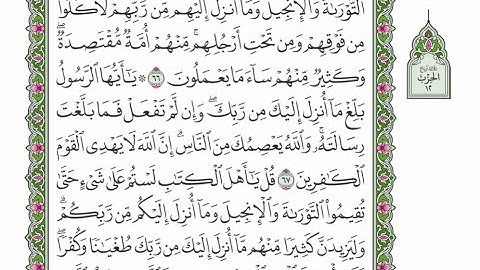 ٱلتَّوۡرَىٰةَ وَٱلۡإِنجِيلَ وَمَآ أُنزِلَ إِلَيۡهِم مِّن رَّبِّهِمۡ لَأَكَلُواْ
مِن فَوۡقِهِمۡ وَمِن تَحۡتِ أَرۡجُلِهِمۚ مِّنۡهُمۡ أُمَّةٞ مُّقۡتَصِدَةٞۖ
وَكَثِيرٞ مِّنۡهُمۡ سَآءَ مَا يَعۡمَلُونَ ٦٦ ۞ يَٰٓأَيُّهَا ٱلرَّسُولُ
بَلِّغۡ مَآ أُنزِلَ إِلَيۡكَ مِن رَّبِّكَۖ وَإِن لَّمۡ تَفۡعَلۡ فَمَا بَلَّغۡتَ
رِسَالَتَهُۥۚ وَٱللَّهُ يَعۡصِمُكَ مِنَ ٱلنَّاسِۗ إِنَّ ٱللَّهَ لَا يَهۡدِي ٱلۡقَوۡمَ
ٱلۡكَٰفِرِينَ ٦٧ قُلۡ يَٰٓأَهۡلَ ٱلۡكِتَٰبِ لَسۡتُمۡ عَلَىٰ شَيۡءٍ حَتَّىٰ
تُقِيمُواْ ٱلتَّوۡرَىٰةَ وَٱلۡإِنجِيلَ وَمَآ أُنزِلَ إِلَيۡكُم مِّن رَّبِّكُمۡۗ
وَلَيَزِيدَنَّ كَثِيرٗا مِّنۡهُم مَّآ أُنزِلَ إِلَيۡكَ مِن رَّبِّكَ طُغۡيَٰنٗا وَكُفۡرٗاۖ
ثلاثة أرباع
الحزب
١٢